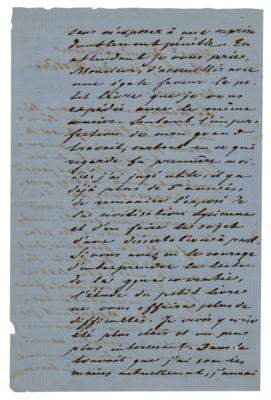 sans m'exposer à une reprise
doublement pénible. En
attendant je vous prie,
Monsieur, d'accueillir avec
une égale faveur le pe-
tit livre que je vous
expédie avec le même
courrier. Sentant l'imper-
fection de mon grand
travail, surtout en ce qui
regarde sa première moi-
tié, j'ai jugé utile il y a
déjà plus de 5 années
de remanier l'exposé de
la civilisation
et d'en faire le sujet
d'une dissertation à part.
Si vous avez eu le courage
d'entreprendre la lecture
de la
l'étude du petit livre
ne vous offrira plus de
difficultés. Je crois qu'il
est plus clair et un peu
plus intéressant. Dans le
travail que j'ai sous les
mains actuellement, j'aurai